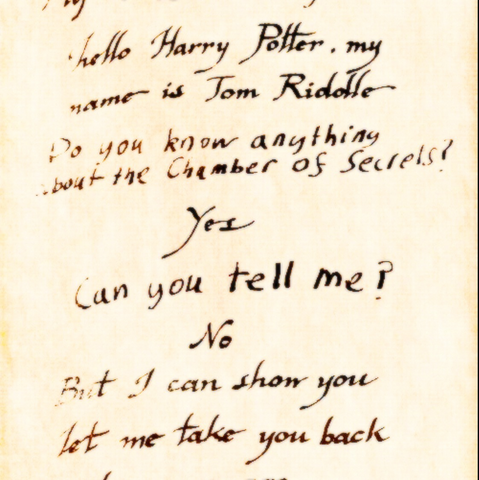 hello Harry Potter. my
name is Tom Riddle
Do you know anything
about the Chamber of Secrets?
Yes
Can you tell me?
No
But I can show you
let me take you back